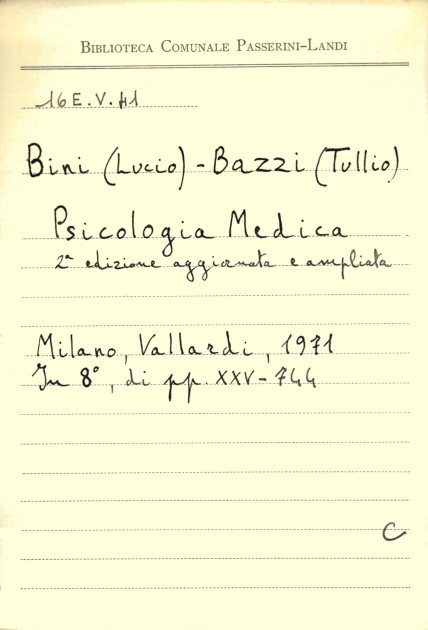 BIBLIOTECA COMUNALE PASSERINI-LANDI
16 E. V. 41
Bini (Lucio) - Bazzi (Tullio)
Psicologia Medica
2ª edizione aggiornata e ampliata
Milano, Vallardi, 1971
In 8°, di pp. XXV-744
C